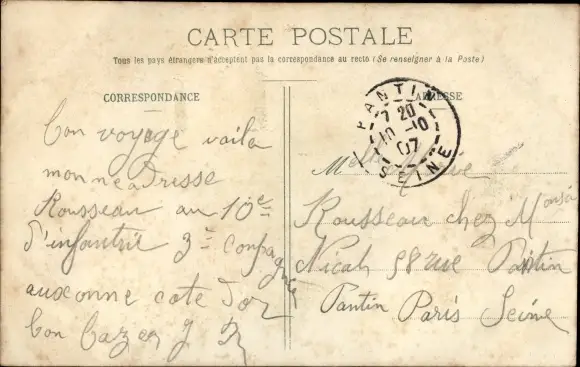 CARTE POSTALE
Tous les pays étrangers n'acceptent pas la correspondance au recto (Se renseigner à la Poste)
CORRESPONDANCE
ADRESSE
PANTIN
7 20
10 -10
07
SEINE
bon voyage voila
mon neadresse
Rousseau au 10e
d'infantrie 3e conpagnie
auxonne cote Dor
bon
Rousseau chez
58 rue Pantin
Pantin Paris Seine